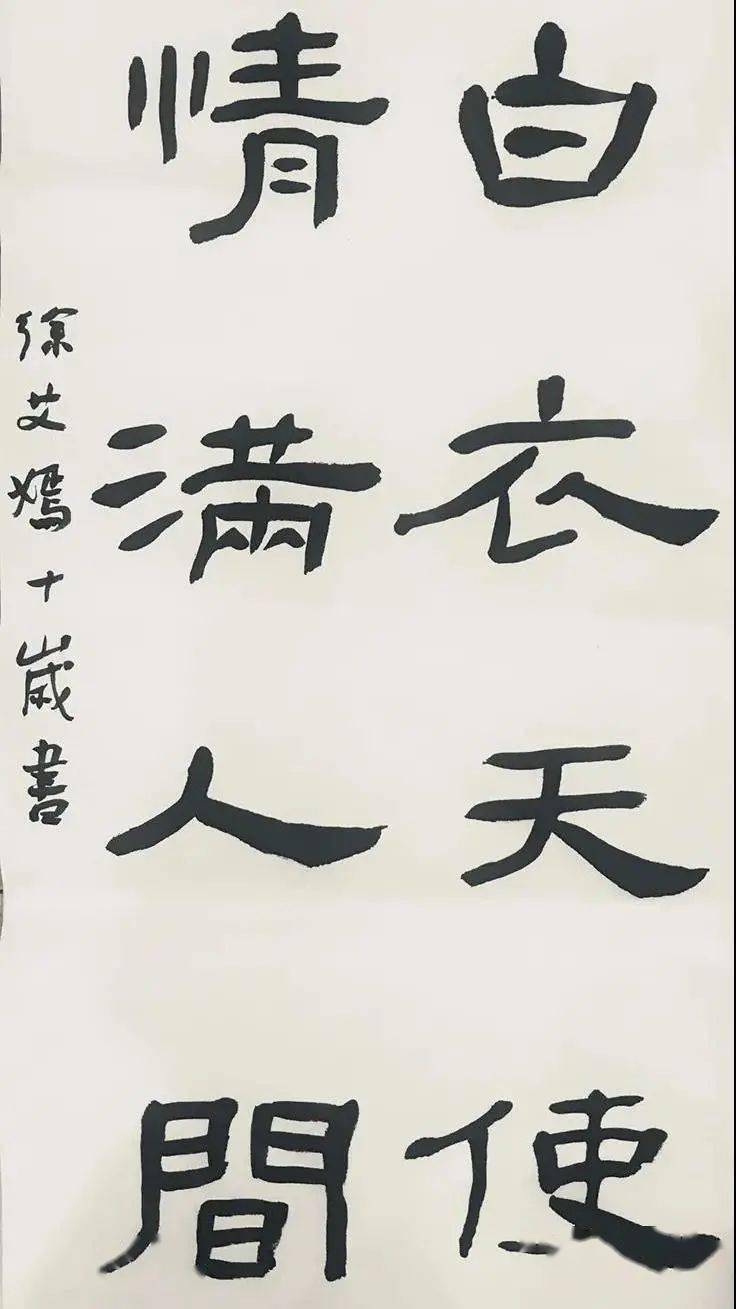 白衣天使
情满人間
徐艾嫣十歲書